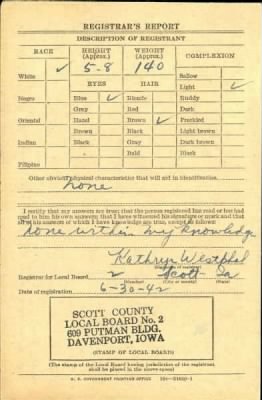 REGISTRAR'S REPORT
DESCRIPTION OF REGISTRANT
RACE HEIGHT (Approx.) WEIGHT (Approx.) COMPLEXION
White ✓ 5-8 140 Sallow
EYES HAIR Light ✓
Negro Blue ✓ Blonde Ruddy
Gray Red Dark
Oriental Hazel Brown ✓ Freckled
Brown Black Light brown
Indian Black Gray Dark brown
Bald Black
Filipino
Other obvious physical characteristics that will aid in identification
none
I certify that my answers are true; that the person registered has read or has had
read to him his own answers; that I have witnessed his signature or mark and that
all of his answers of which I have knowledge are true, except as follows:
none within my knowledge
Kathryn Westphal
Registrar for Local Board 2 Scott Ia
(Number) (City or county) (State)
Date of registration 6-30-42
SCOTT COUNTY
LOCAL BOARD No. 2
609 PUTMAN BLDG.
DAVENPORT, IOWA
(STAMP OF LOCAL BOARD)
(The stamp of the Local Board having jurisdiction of the registrant
shall be placed in the above space)
U. S. GOVERNMENT PRINTING OFFICE